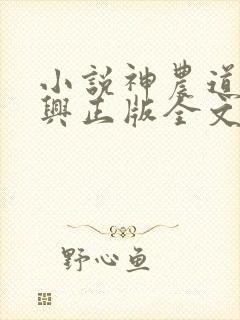 小說神農道
興正版全文
野心鱼